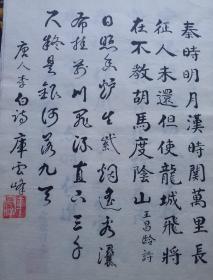 秦時明月漢時關萬里長
征人未還但使龍城飛將
在不教胡馬度陰山 王昌齡詩
日照香炉生紫烟遥看瀑
布挂前川飛流直下三千
尺疑是銀河落九天
唐人李白詩 庫雲峰